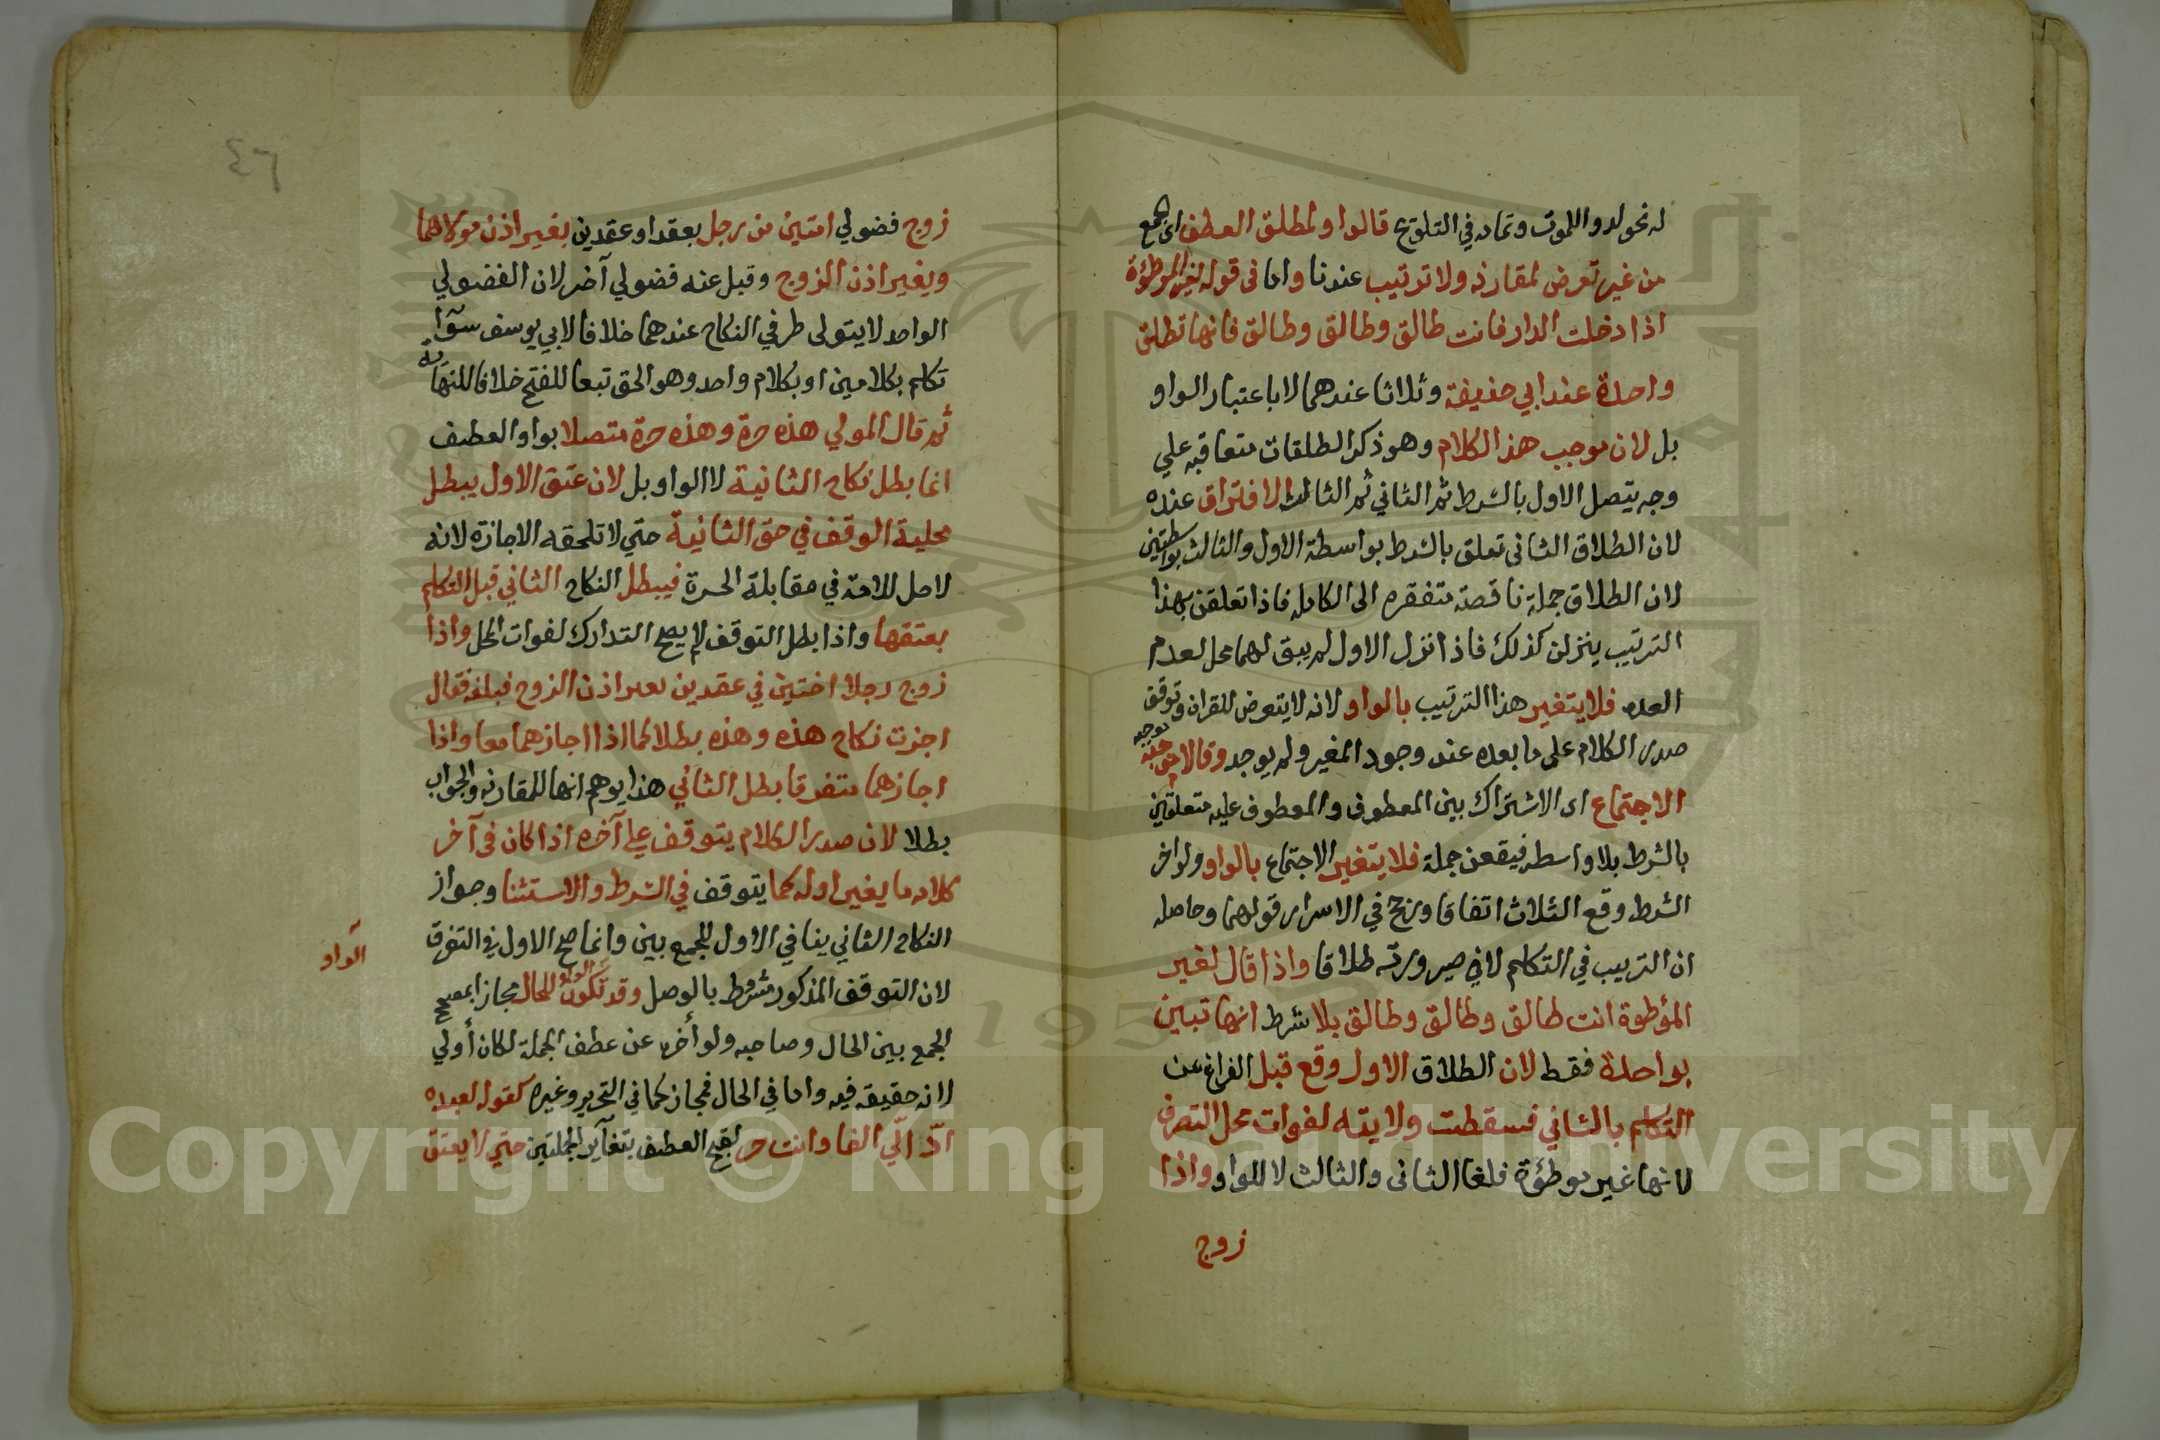 له نحو لدوا للموت وتمامه في التلويح قالواو لمطلق العطف اى الجمع
من غير تعرض لمقارنة ولا ترتيب عندنا واما فى قوله لغير الموطؤة
اذا دخلت الدار فانت طالق وطالق وطالق فانها تطلق
واحدة عند ابي حنيفة وثلاثا عندهما لا باعتبار الواو
بل لان موجب هذا الكلام وهو ذكر الطلقات متعاقبة علي
وجه يتصل الاول بالشرط ثم الثاني ثم الثالث الافتراق عنده
لان الطلاق الثانى تعلق بالشرط بواسطة الاول والثالث بواسطتين
لان الطلاق جملة ناقصة متفقرة الى الكاملة فاذا تعلقن بهذا
الترتيب ينزلن كذلك فاذا نزل الاول لم يبق لهما محل لعدم
العدة فلا يتغير هذا الترتيب بالواو لانه لا يتعرض للقران وتوقف
صدر الكلام على ما بعده عند وجود المغير ولم يوجد وقالا موجبه
الاجتماع اى الاشتراك بين المعطوف والمعطوف عليه متعلقين
بالشرط بلا واسطة فيقعن جملة فلا يتغير الاجتماع بالواو ولو اخر
الشرط وقع الثلاث اتفاقا ورجح في الاسرار قولهما وحاصله
ان الترتيب في التكلم لا في صيرورته طلاقا واذا قال لغير
المؤطوة انت طالق وطالق وطالق بلا شرط انها تبين
بواحدة فقط لان الطلاق الاول وقع قبل الفراغ عن
التكلم بالثاني فسقطت ولايته لفوات محل التصرف
لانها غير موطؤة فلغا الثانى والثالث لا للواو واذا
زوج
٤٦
زوج فضولي امتين من رجل بعقد او عقدين بغير اذن مولاهما
وبغير اذن الزوج وقبل عنه فضولي آخر لان الفضولي
الواحد لا يتولى طرفي النكاح عندهما خلافا لابي يوسف سوآء
تكلم بكلامين او بكلام واحد وهو الحق تبعا للفتح خلافا للنهاية
ثم قال المولي هذه حرة وهذه حرة متصلا بواو العطف
انما بطل نكاح الثانية لا الواو بل لان عتق الاول يبطل
محلية الوقف في حق الثانية حتي لا تلحقه الاجازة لانه
لا حل للامة في مقابلة الحرة فيبطل النكاح الثاني قبل التكلم
بعتقها واذا بطل التوقف لم يصح التدارك لفوات المحل واذا
زوج رجلا اختين في عقدين بغير اذن الزوج فبلغه فقال
اجزت نكاح هذه وهذه بطلا كما اذا اجازهما معا واذا
اجازهما متفرقا بطل الثاني هذا يوهم انها للمقارنة والجواب
بطلا لان صدر الكلام يتوقف علي آخره اذا كان فى آخر
كلامه ما يغير اوله كما يتوقف في الشرط والاستثنا وجواز
النكاح الثاني ينافي الاول للجمع بين وانما صح الاول في التفرق
الواو
لان التوقف المذكور مشروط بالوصل وقد تكون الواو للحال مجازا بمصحح
الجمع بين الحال وصاحبه ولو أخره عن عطف الجملة لكان أولي
لانه حقيقة فيه واما في الحال فمجاز كما في التحرير وغيره كقوله لعبده
ادّ الّي الفا وانت حر لقبح العطف بتغآير الجملتين حتي لا يعتق